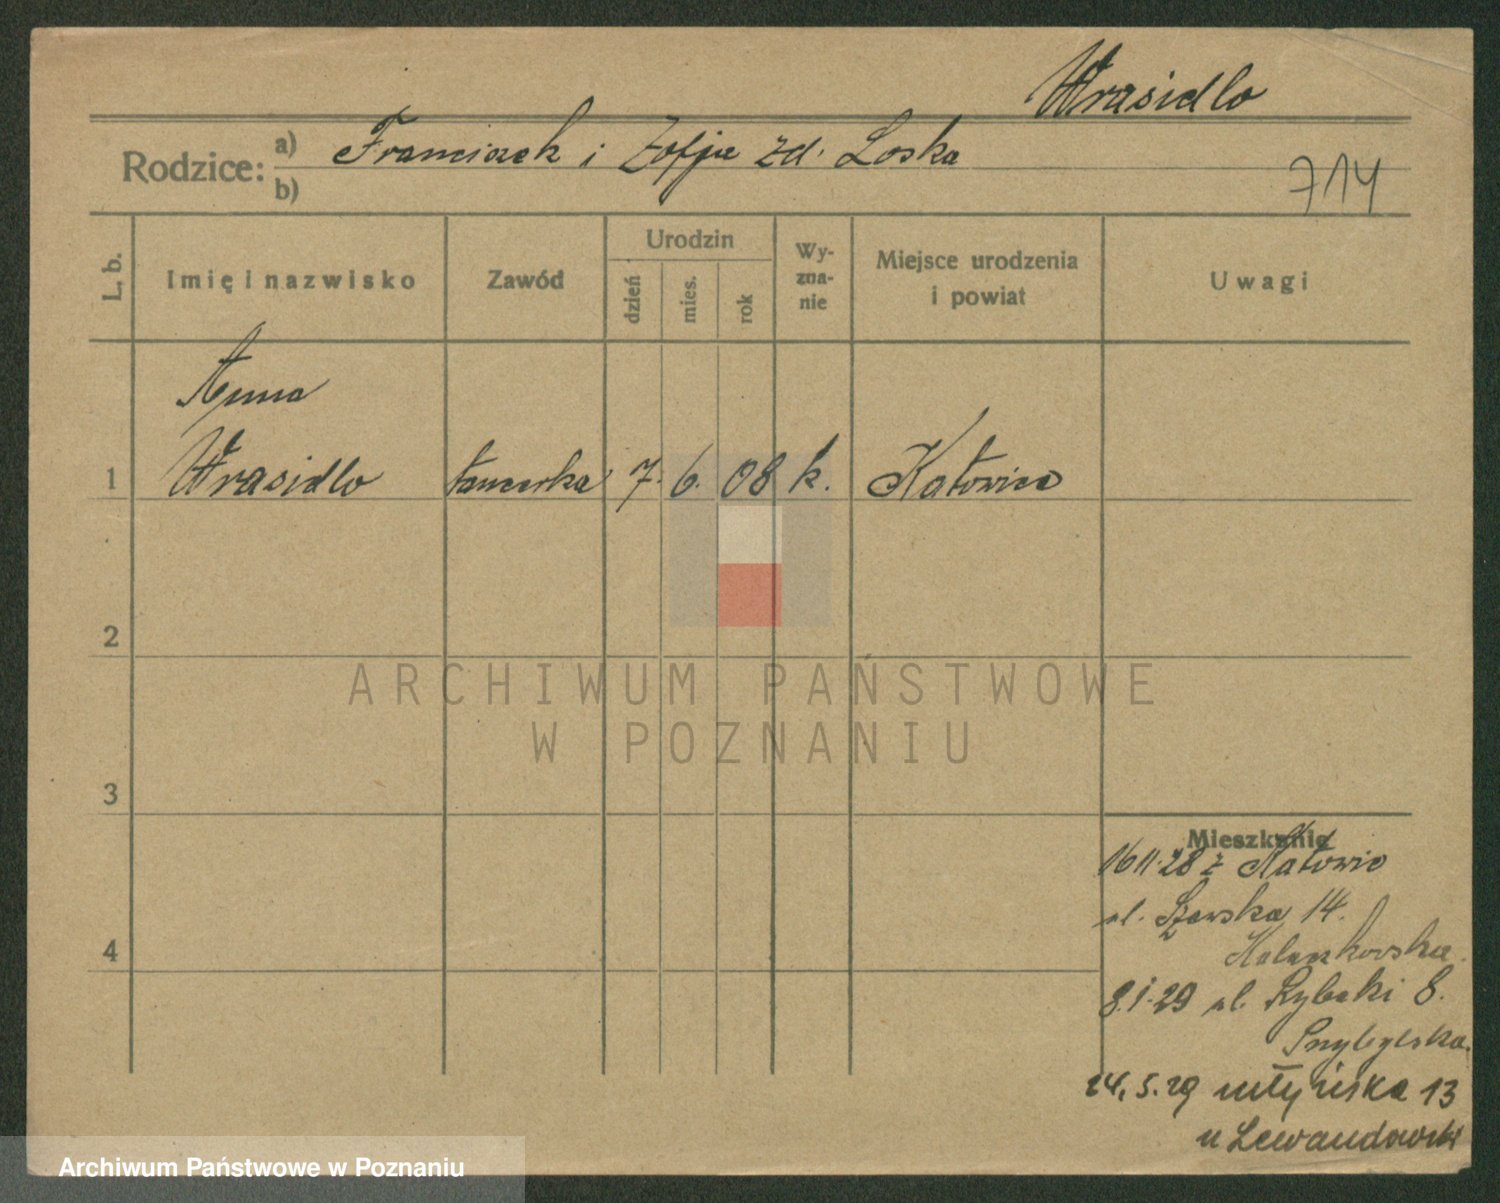 Wrasidlo
Rodzice: a) Franciszek i Zofja zd. Loska
b)
714
L. b.
Imię i nazwisko
Zawód
Urodzin
dzień
mies.
rok
Wy-
zna-
nie
Miejsce urodzenia
i powiat
Uwagi
Anna
1 Wrasidlo tancerka 7. 6. 08 k. Katowice
2
3
4
Mieszkanie
16 11.28 z Katowic
ul. Szewska 14.
8.1.29 ul. Rybaki 8.
Przybylska.
24.5.29 młyńska 13
u Lewandowski
ARCHIWUM PAŃSTWOWE
W POZNANIU
Archiwum Państwowe w Poznaniu